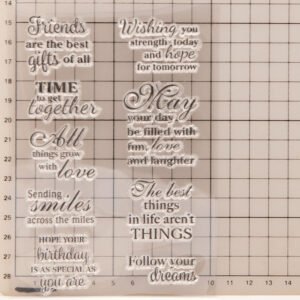 Friends
are the best
gifts of all
TIME
to get
together
All
things grow
with love
Sending
smiles
across the miles
HOPE YOUR
birthday
IS AS SPECIAL AS
you are
Wishing you
strength today
and hope
for tomorrow
May
your day
be filled with
fun, love
and laughter
The best
things
in life aren't
THINGS
Follow your
dreams